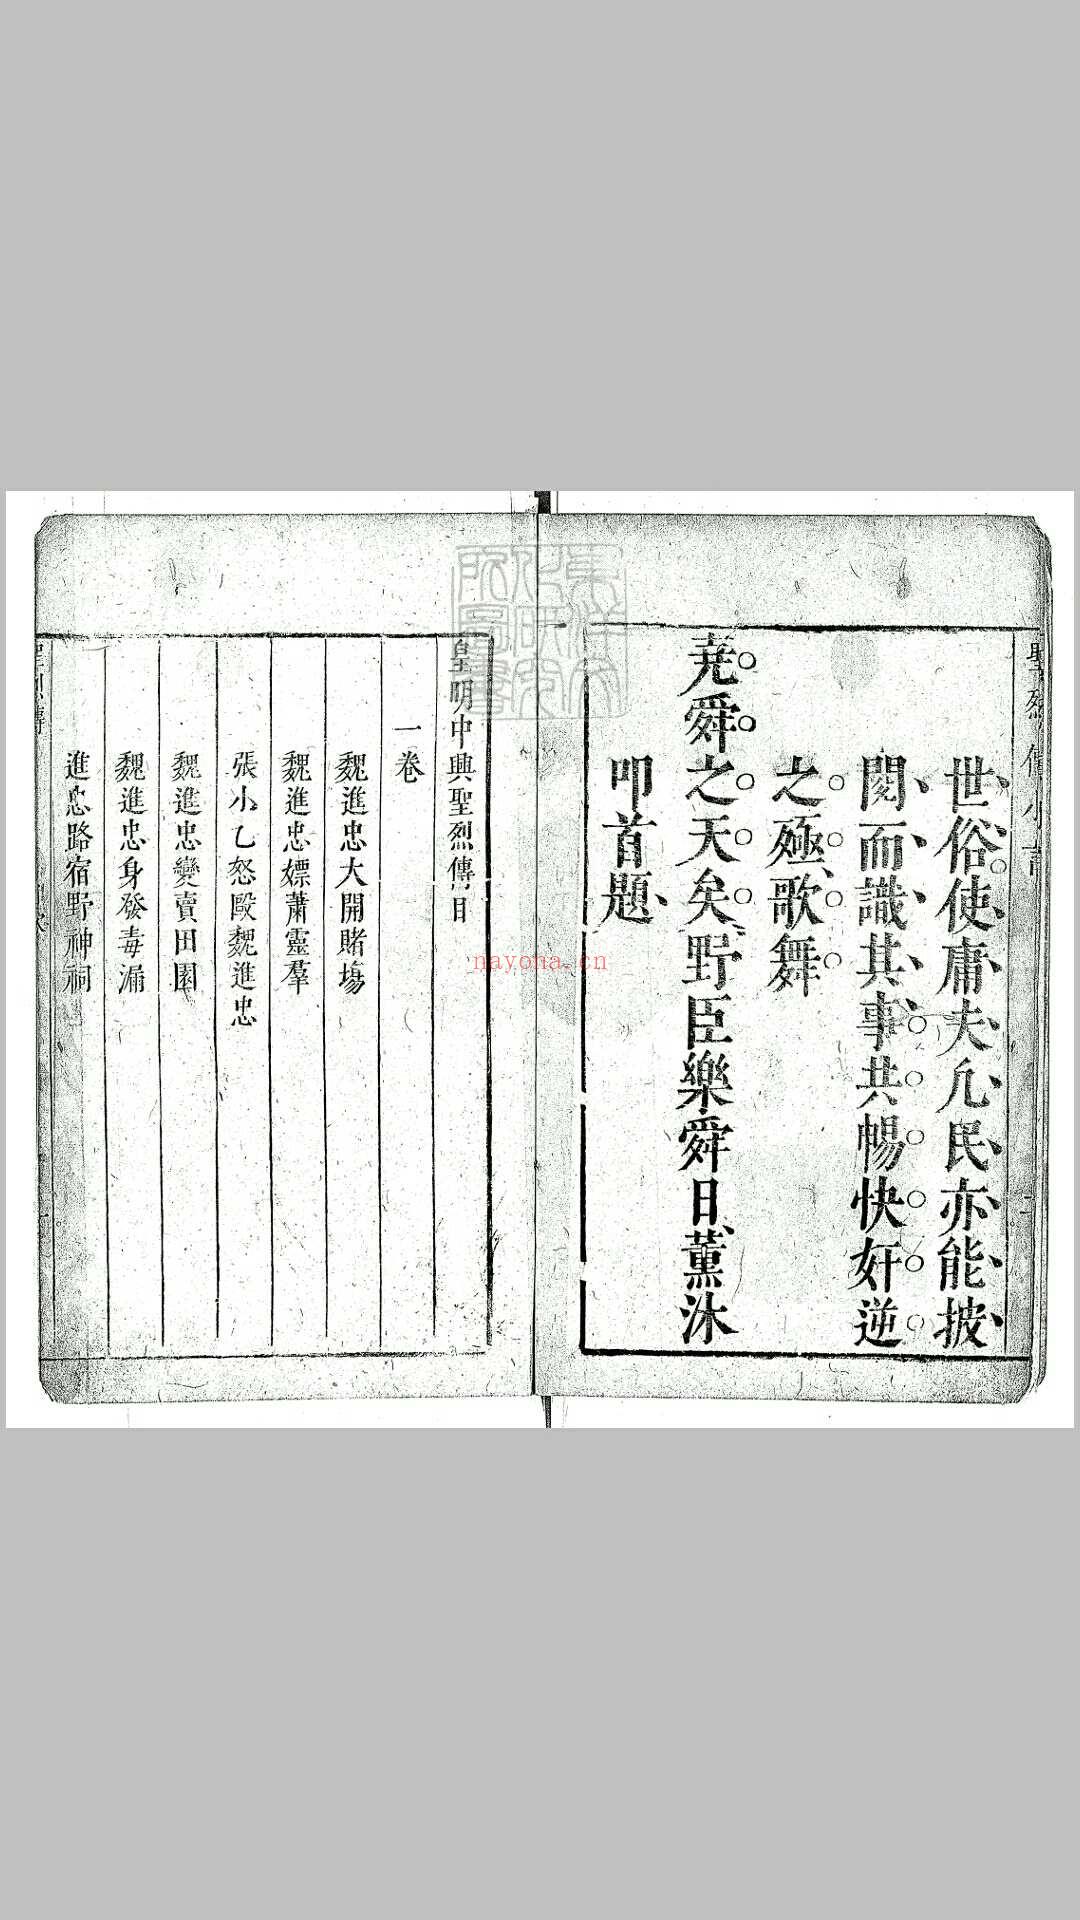 世俗使庸夫凢民亦能披
閱而識其事共暢快奸逆
之殛歌舞
堯舜之天矣野臣樂舜日薰沐
叩首題
皇明中興聖烈傳目
一卷
魏進忠大開賭塲
魏進忠嫖蕭靈羣
張小乙怒毆魏進忠
魏進忠變賣田園
魏進忠身發毒漏
進忠路宿野神祠
nayona.cn